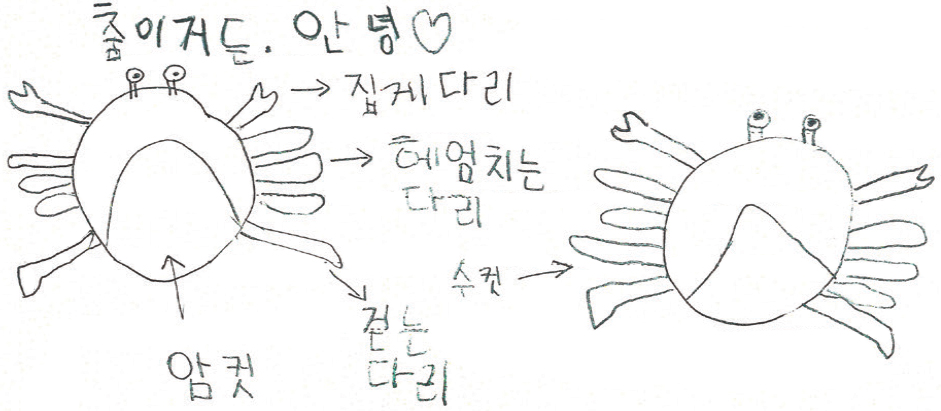 춥이거든. 안녕♡
집게다리
헤엄치는
다리
수컷
걷는
다리
암컷